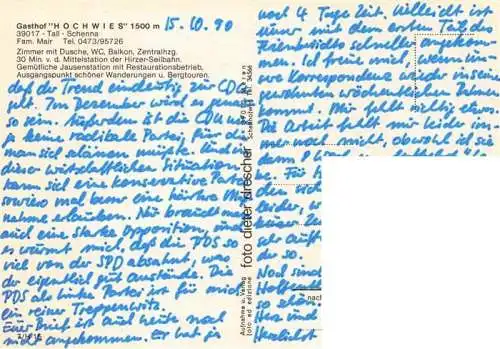 Gasthof "HOCHWIES" 1500 m
39017 - Tall - Schenna
Fam. Mair Tel. 0473/95726
Zimmer mit Dusche, WC, Balkon, Zentralhzg.
30 Min. v. d. Mittelstation der Hirzer-Seilbahn.
Gemütliche Jausenstation mit Restaurationsbetrieb.
Ausgangspunkt schöner Wanderungen u. Bergtouren.
15.10.90
daß der Trend eindeutig zur CDU
geht. Im Dezember wird es genau
so sein. Außerdem ist die CDU
ja keine radikale Partei, für die
man sich schämen müßte. Und in
dieser wirtschaftlichen Situation
kann sich eine konservative Partei
sowieso mal kurz eine härtere
nahme erlauben. Nur braucht man
auch eine starke Opposition, und
es wurmt mich, daß die PDS so
viel von der SPD absahnt, was
der eigentlich gut anstände. Die
PDS als linke Partei ist für mich
ein reiner Treppenwitz.
Euer Brief ist auch heute noch
nicht angekommen. Er hat ja
noch 4 Tage Zeit. Vielleicht ist
unser mit dem ersten Teil des
schneller angekommen.
Ich freue mich, wenn
Korrespondenz wieder in
gewohnten wöchentlichen
kommt. Mir fehlt richtig etwas.
Die Arbeit fehlt mir leider
noch nicht, obwohl ich sie
dann
Für
den
leider, w
sehr
der so.
Noch sind
so schön.
Herz und
Herzlichst
foto dieter drescher
Aufnahme u. Verlag
foto ed edizione